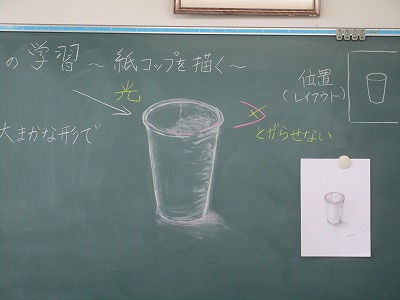 の学習～紙コップを描く～
光
位置
(レイアウト)
大まかな形で
×
とがらせない